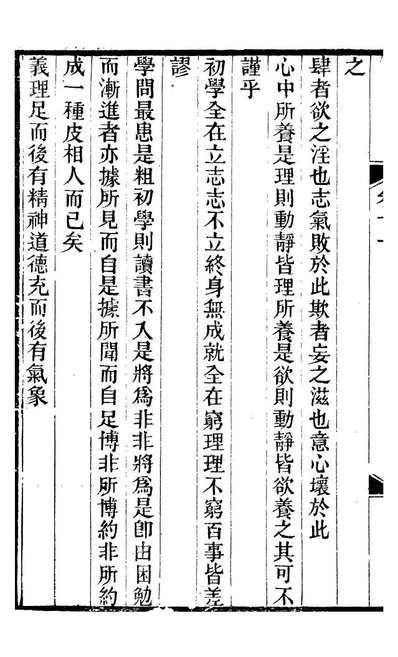 之
肆者欲之淫也志氣敗於此欺者妄之滋也意心壞於此
心中所養是理則動靜皆理所養是欲則動靜皆欲養之其可不
謹乎
初學全在立志志不立終身無成就全在窮理理不窮百事皆差
謬
學問最患是粗初學則讀書不入是將爲非非將爲是卽由困勉
而漸進者亦據所見而自是據所聞而自足博非所博約非所約
成一種皮相人而已矣
義理足而後有精神道德充而後有氣象